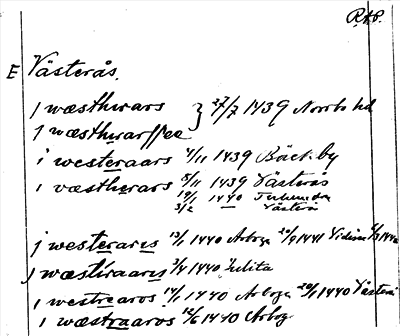 R.A.P.
E Västerås.
j wæsthwars } 27/7 1439 Norrbo hd
j wæsthwarssee
i westeraars 4/11 1439 Bäckby
i væstherars 5/11 1439 Västerås
19/1 1440 Tuhundra
3/2 Västerås
j westerars 13/1 1440 Arboga 20/9 1441
j wæsthraars 3/4 1440 Julita
i westrearos 14/1 1440 Arboga 20/1 1440 Västerås
i wæstraaros 12/6 1440 Arbog